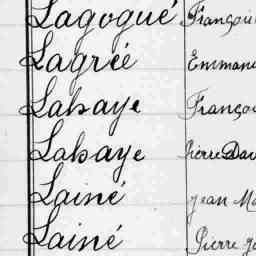 Lagogué François
Lagrée Emmanu
Lahaye Franço
Lahaye Pierre Dav
Lainé Jean Ma
Lainé Pierre